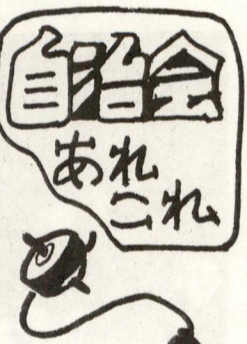 自治会
あれ
これ